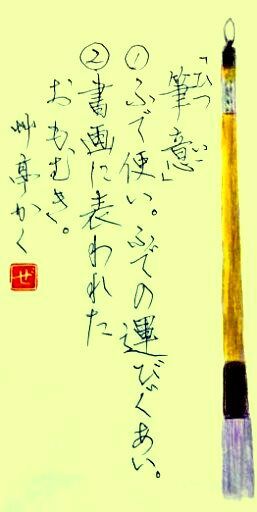 「筆意」
ひつ い
①ふで使い。ふでの運びぐあい。
②書画に表われた
おもむき。
艸亭かく
ぜ